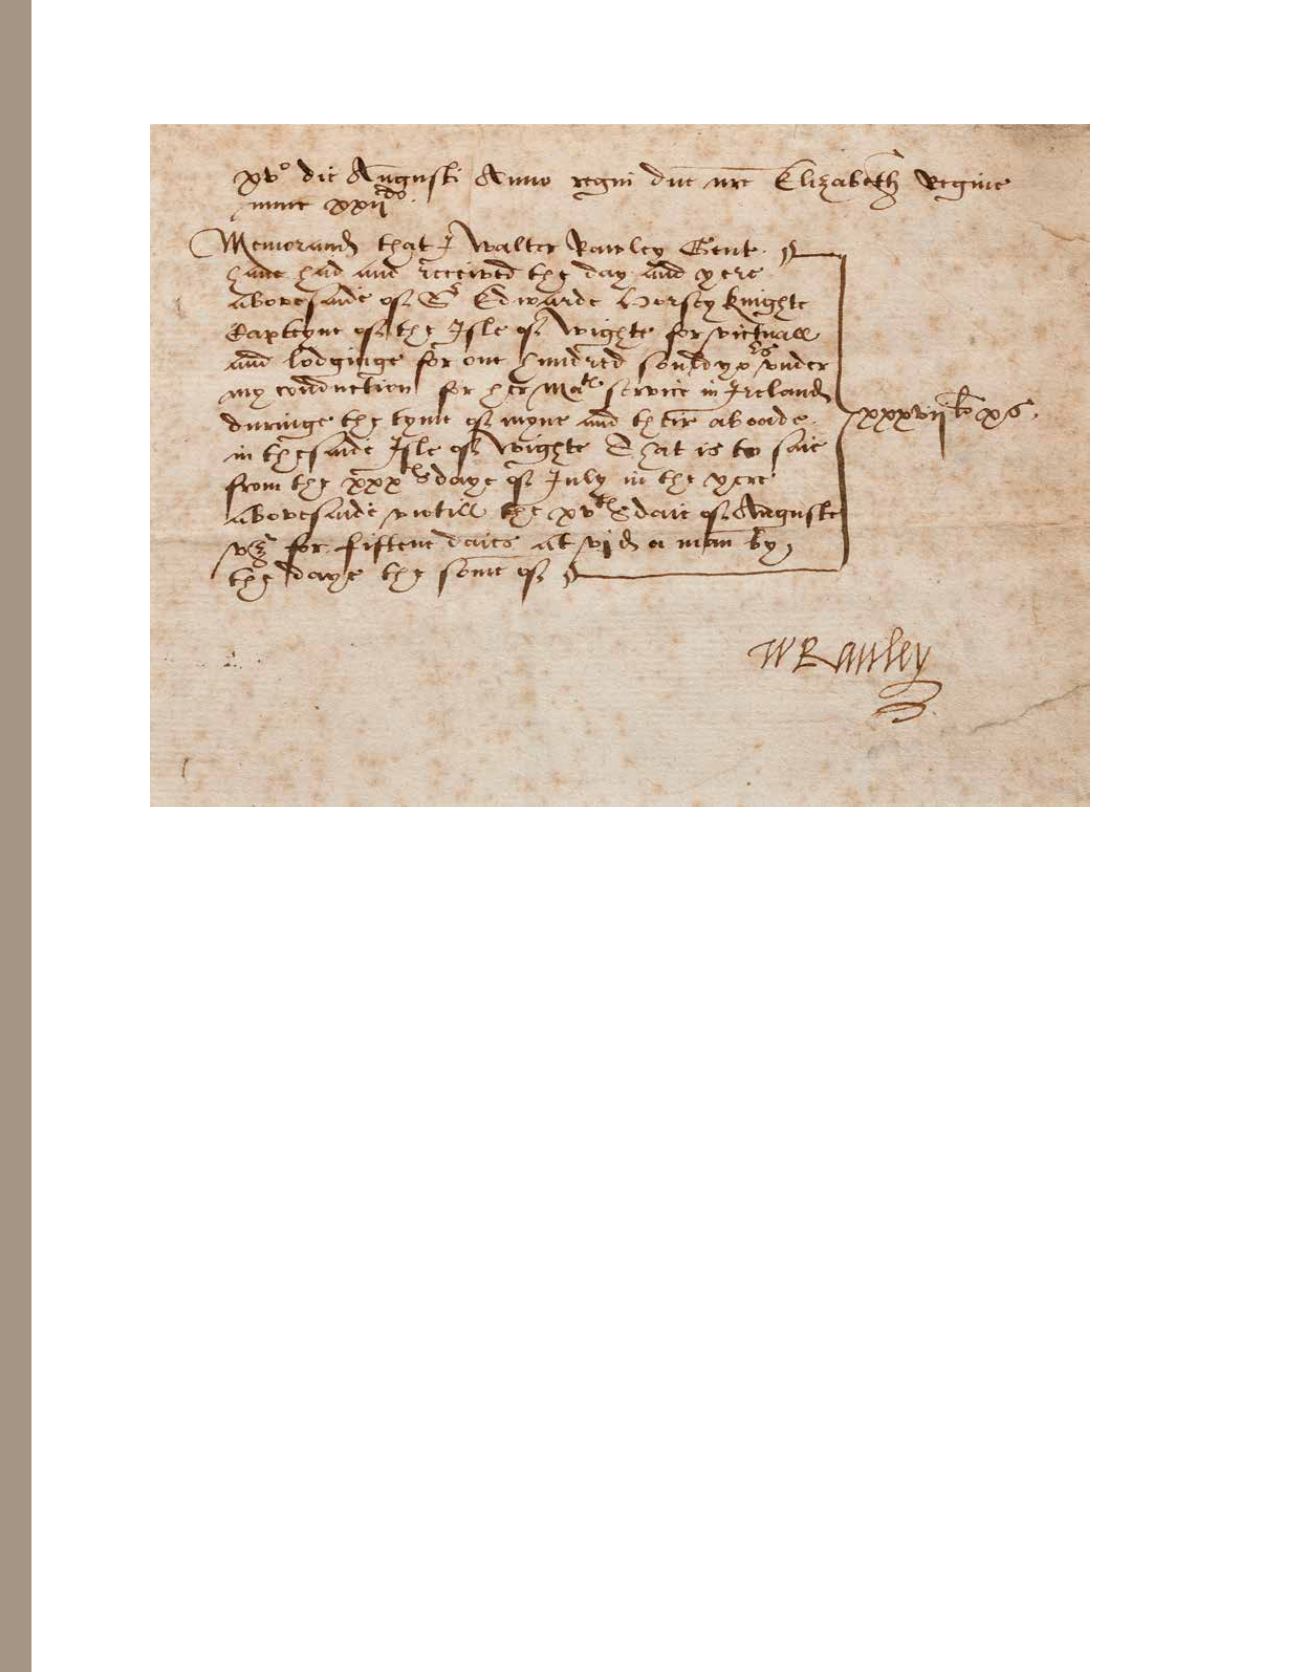 xv° die Augusti Anno regni dne nre Elizabeth Regine
nunc xxii do.
Memorand that I Walter Rawley Gent.
have had and received the day and yere
abovesaide of Sr Edwarde Horsey knighte
Capteyne of the Isle of Wighte for victuall
and lodginge for one hundred souldyors under
my conduction for her Matis service in Ireland
duringe the tyme of myne and their aboade
in thesaide Isle of Wighte That is to saie
from the xxxth daye of July in the yere
abovesaide untill the xvth daie of Auguste
vz for fiftene daies at vjd a man by
the daye the some of
xxxvii li xs.
WRauley